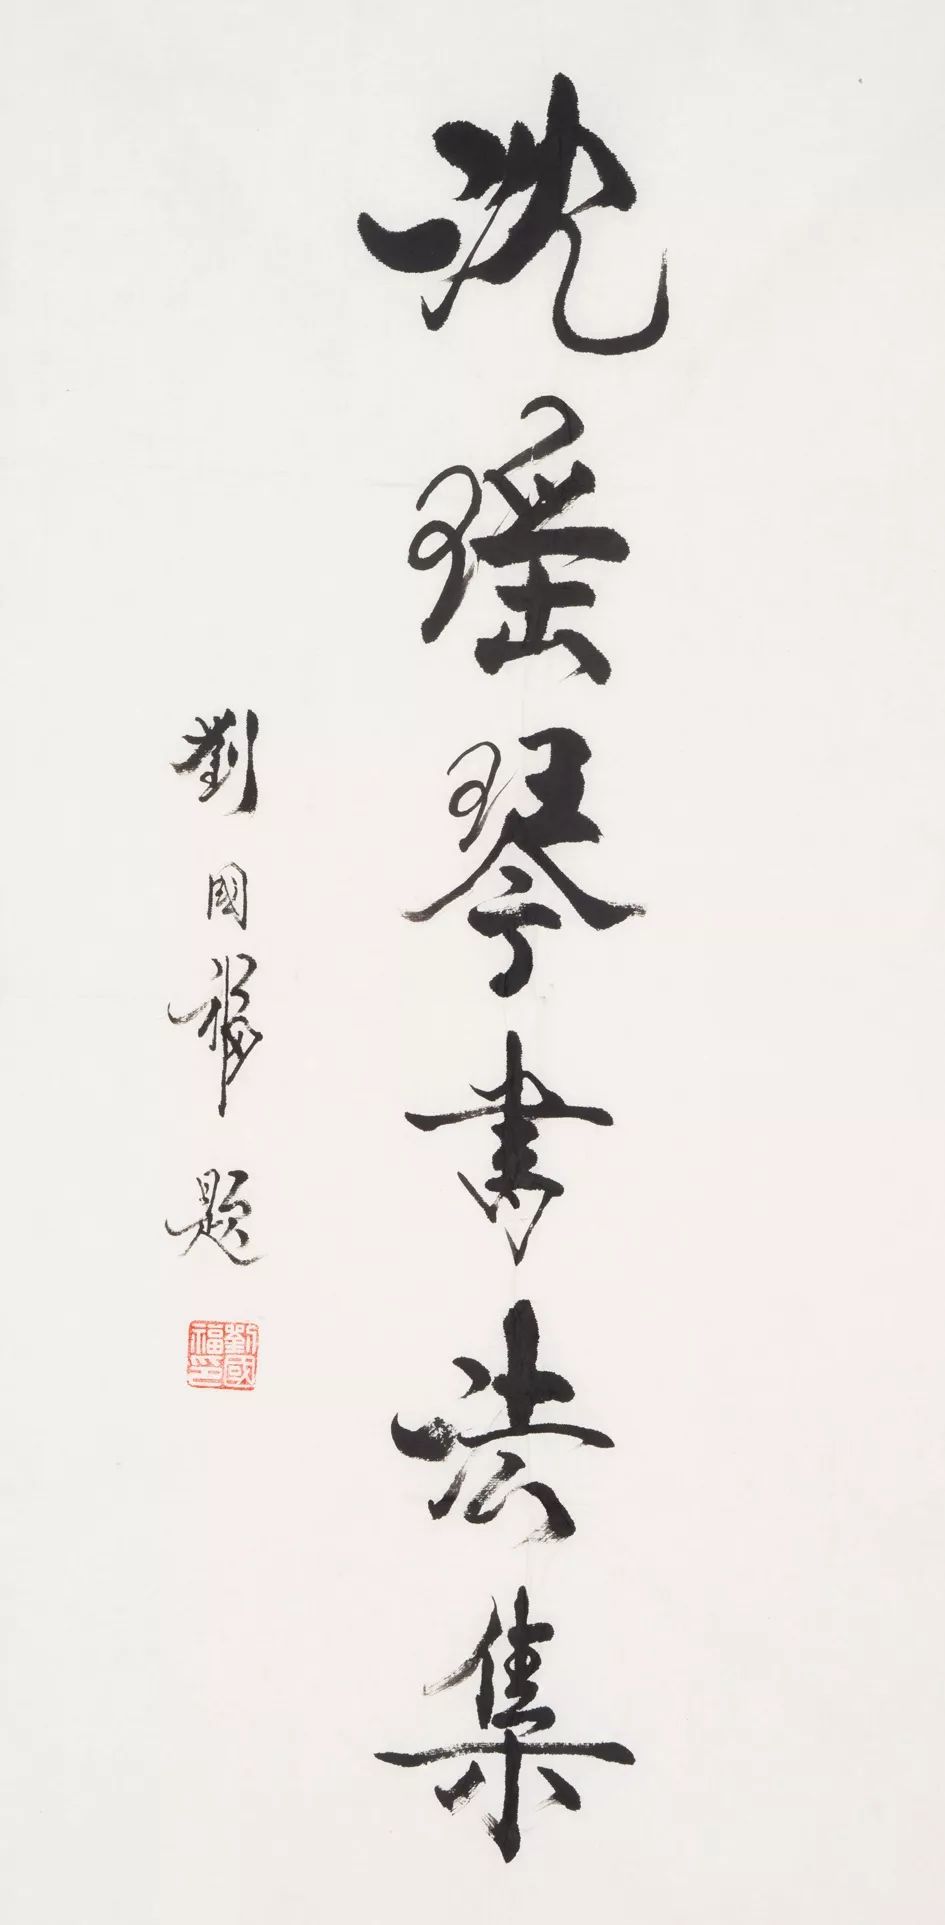 沈瑶琴书法集
劉國福題
劉國福印